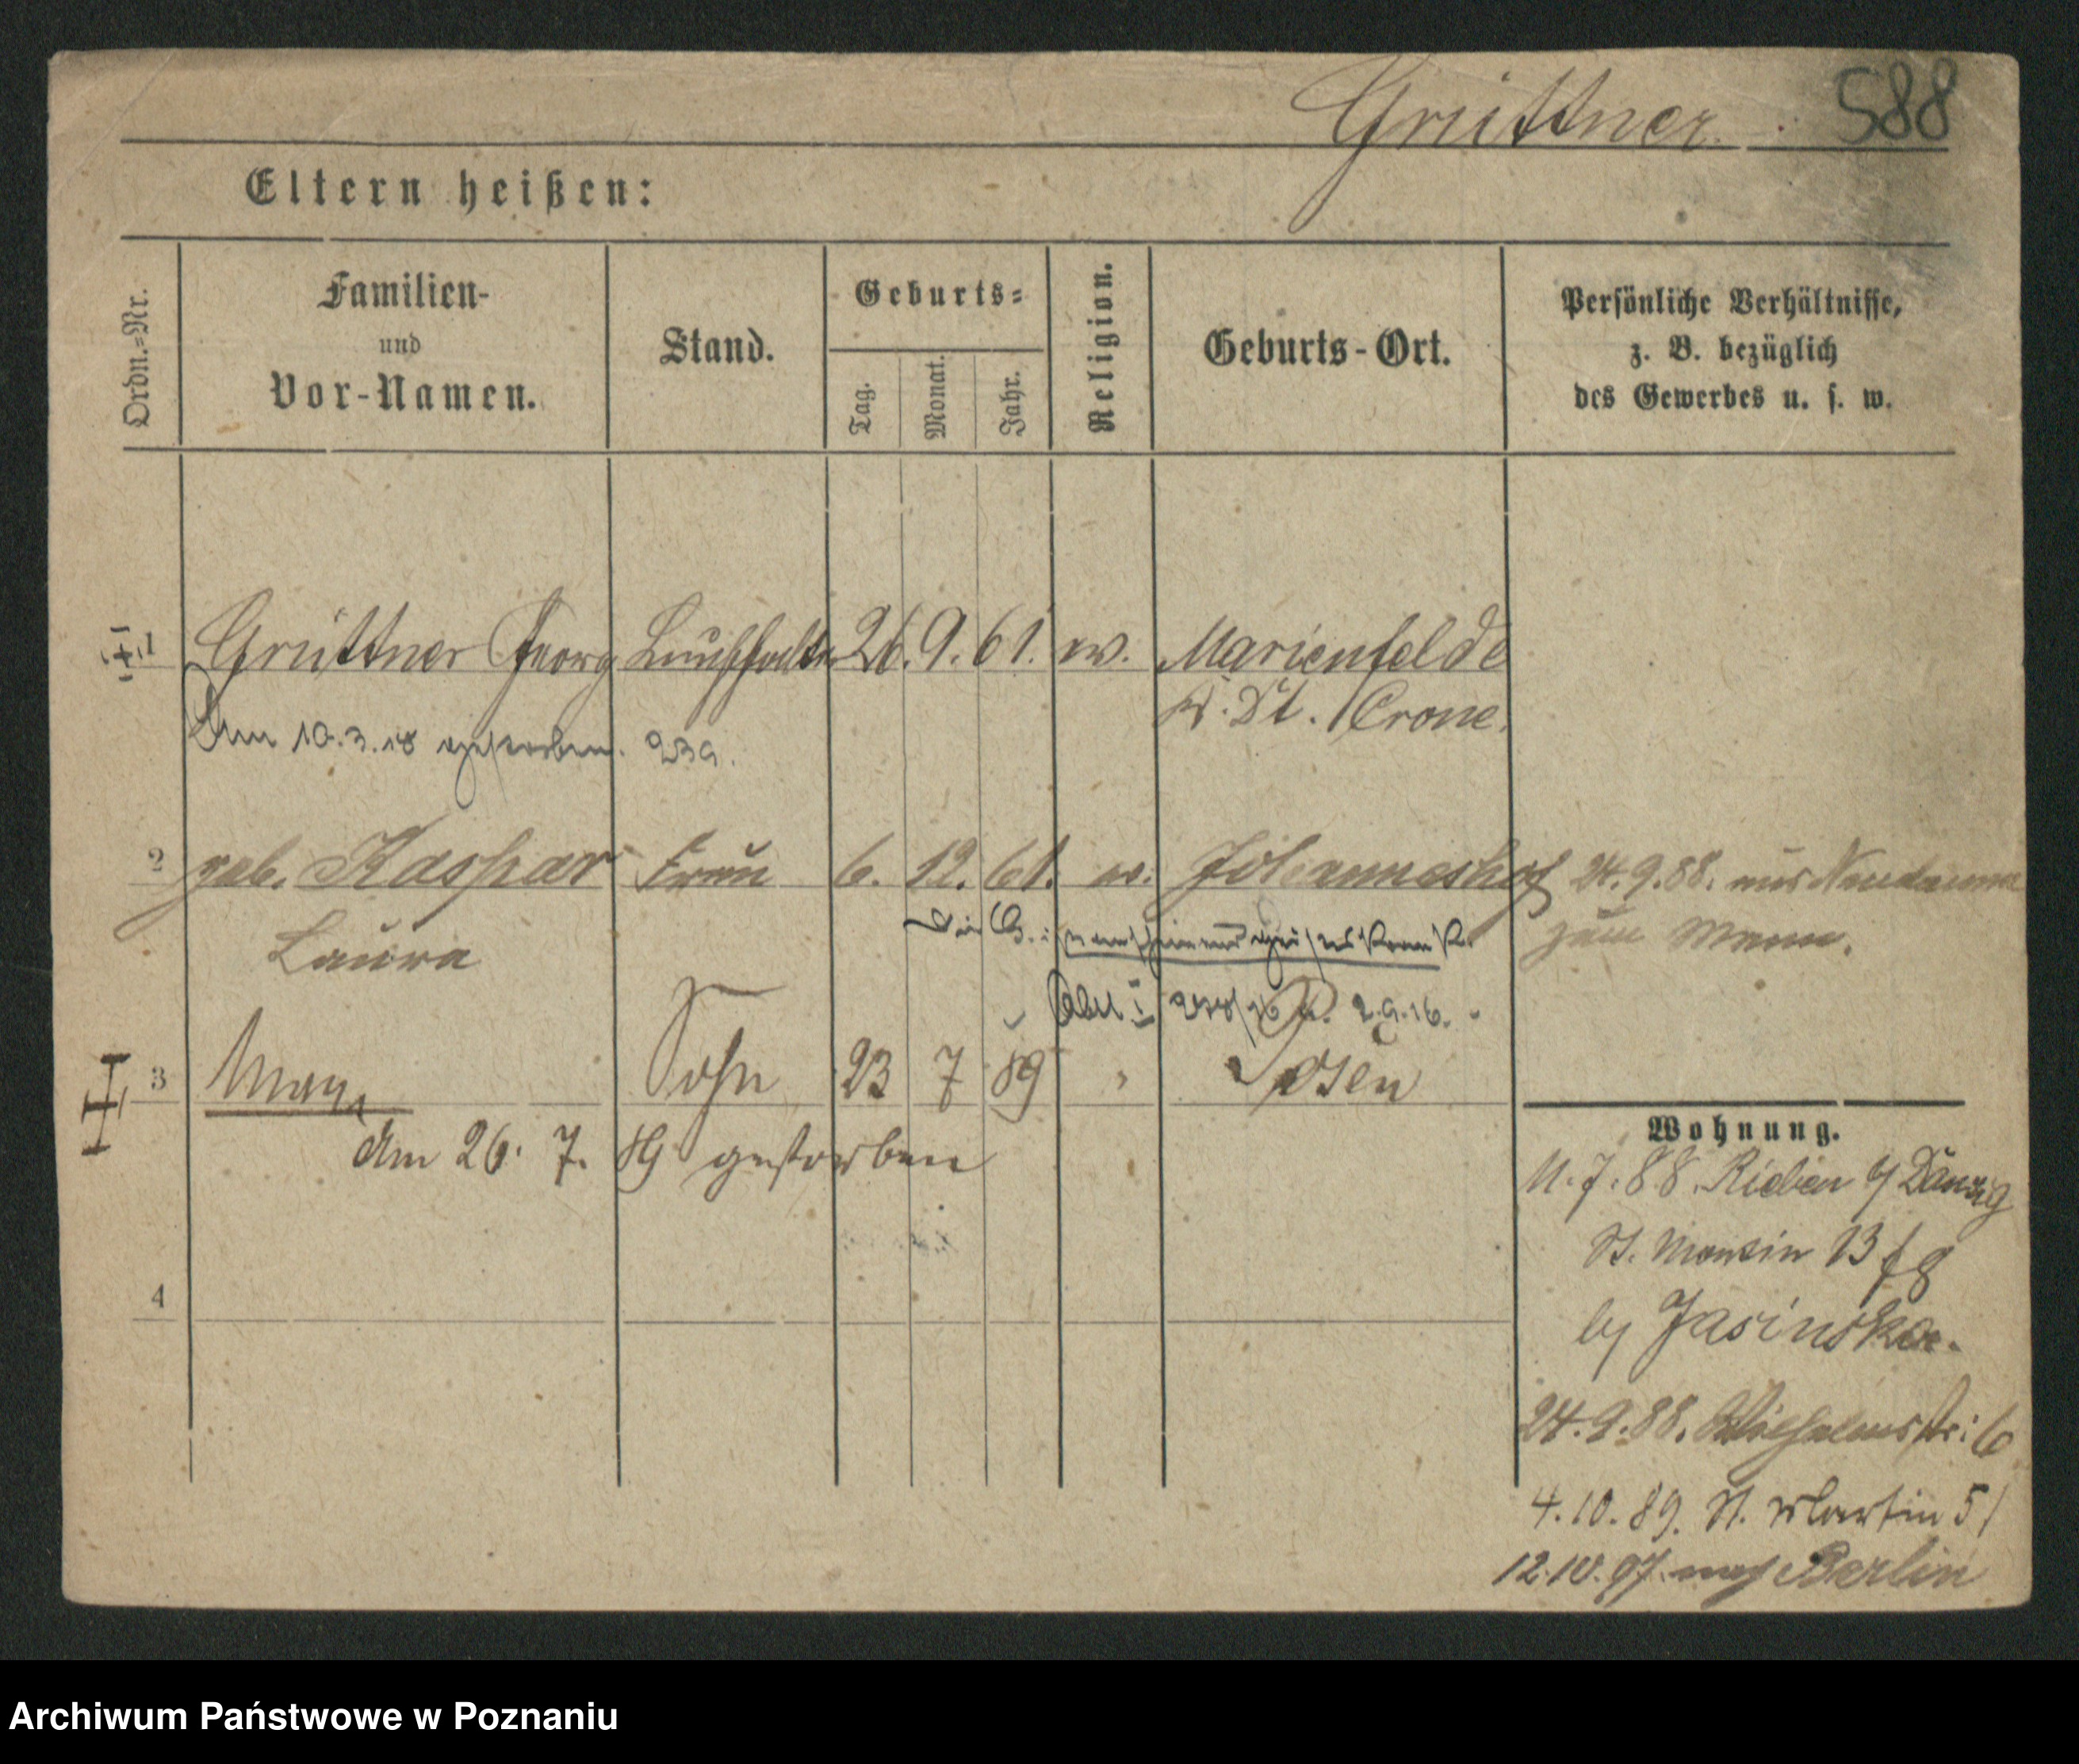 Grüttner. 588
Eltern heißen:
Ordn.=Nr.
Familien-
und
Vor-Namen.
Stand.
Geburts=
Tag.
Monat.
Jahr.
Religion.
Geburts-Ort.
Persönliche Verhältnisse,
z. B. bezüglich
des Gewerbes u. s. w.
1 Grüttner Georg Buchhalter 26. 9. 61. ev. Marienfelde
Kr. Dt. Crone.
Am 10.3.18 gestorben. 239.
2 geb. Kaspar Frau 6. 12. 61. ev. Johanneshof 24.9.88. aus
Laura
zum Mann.
Die G.: geisteskrank.
2.9.16.
3 Sohn 23 7 89 " Posen
Am 26. 7. 89 gestorben
4
Wohnung.
11.7.88.
St. Martin 13
by Jasinska.
24.9.88. Wilhelmstr: 6
4.10.89. St. Martin 51
12.10.97. nach Berlin
Archiwum Państwowe w Poznaniu